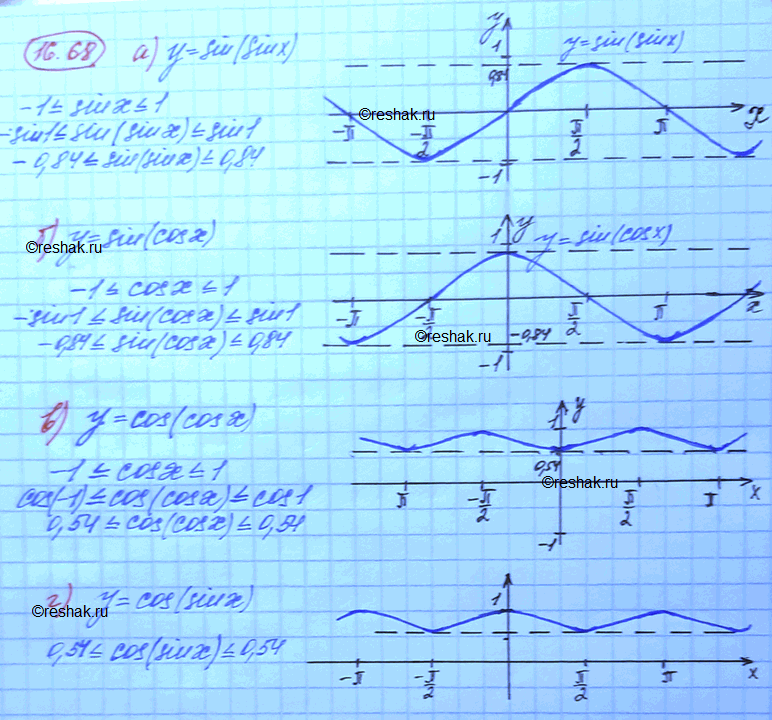 16.68 а) y = sin(sinx)
-1 ≤ sinx ≤ 1
-sin1 ≤ sin(sinx) ≤ sin1
-0,84 ≤ sin(sinx) ≤ 0,84
y
1
0,84
y = sin(sinx)
©reshak.ru
-π -π/2 π/2 π x
-1
б) y = sin(cosx)
©reshak.ru
-1 ≤ cosx ≤ 1
-sin1 ≤ sin(cosx) ≤ sin1
-0,84 ≤ sin(cosx) ≤ 0,84
1 y
y = sin(cosx)
-π -π/2 π/2 π x
©reshak.ru
-0,84
-1
в) y = cos(cosx)
-1 ≤ cosx ≤ 1
cos(-1) ≤ cos(cosx) ≤ cos1
0,54 ≤ cos(cosx) ≤ 0,54
y
1
0,54
©reshak.ru
π -π/2 π/2 π x
-1
г) y = cos(sinx)
©reshak.ru
0,54 ≤ cos(sinx) ≤ 0,54
1
-π -π/2 π/2 π x